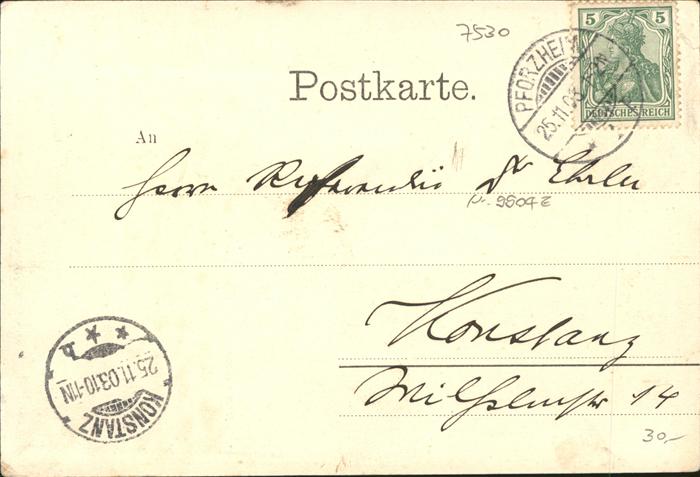 7530
5 5
DEUTSCHES REICH
PFORZHEIM
25.11.03
Postkarte.
An
Herrn Referendär Dr Ehrler
9904 Z
Konstanz
Wilhelmstr 14
30,-
KONSTANZ
25.11.03.10-11N
* b *